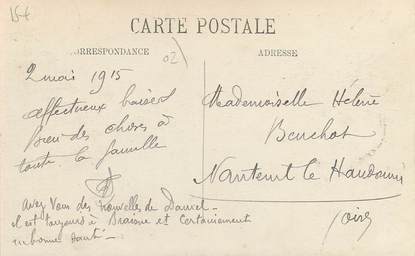 15€
CARTE POSTALE
CORRESPONDANCE
ADRESSE
02
2 mai 1915
affectueux baisers
bien des choses à
toute la famille
Avez vous des nouvelles de Daniel -
il est toujours à Braisne et certainement
en bonne santé -
Mademoiselle Hélène
Bouchot
Nanteuil le Haudouin
Oise